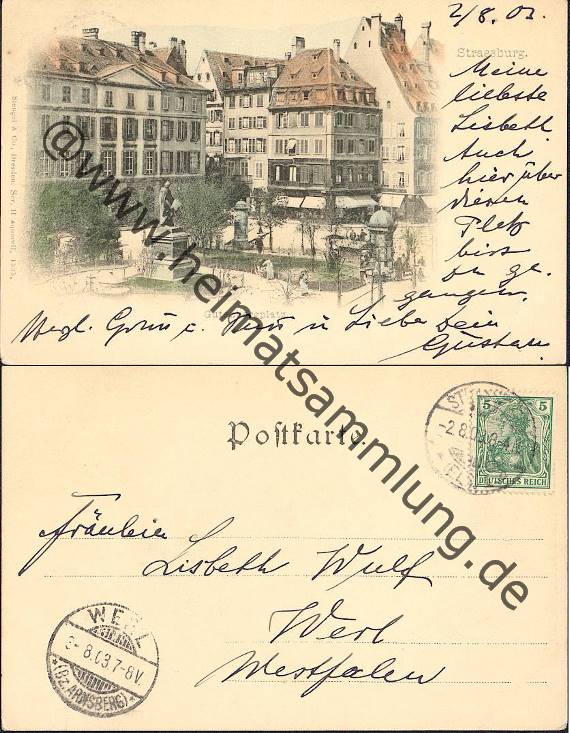 2/8. 03.
Strassburg.
Meine
liebste
Lisbeth
Auch
hier über
diesen
Platz
bist
ge-
gangen.
Stengel & Co., Dresden
Gutenbergplatz
Herzl. Gruss u. Kuss u Liebe Dein
Gustav.
@www.heimatsammlung.de
Postkarte.
-2.8.03
5 5
DEUTSCHES REICH
Fräulein
Lisbeth Wulf
Werl
Westfalen
WERL
3-8.03.7-8V.
*(Bz.ARNSBERG)*